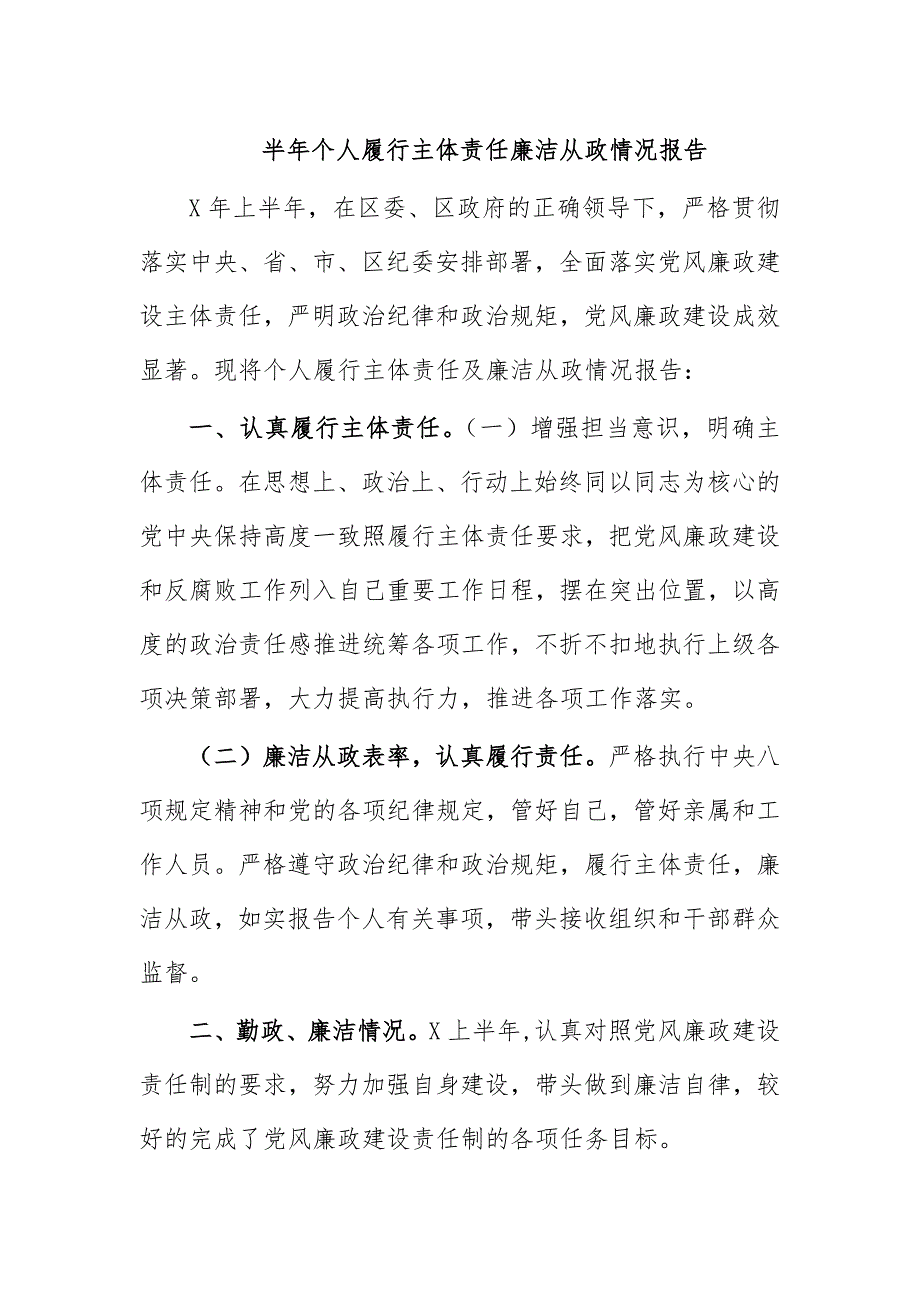 半年个人履行主体责任廉洁从政情况报告
X 年上半年，在区委、区政府的正确领导下，严格贯彻
落实中央、省、市、区纪委安排部署，全面落实党风廉政建
设主体责任，严明政治纪律和政治规矩，党风廉政建设成效
显著。现将个人履行主体责任及廉洁从政情况报告：
一、认真履行主体责任。（一）增强担当意识，明确主
体责任。在思想上、政治上、行动上始终同以同志为核心的
党中央保持高度一致照履行主体责任要求，把党风廉政建设
和反腐败工作列入自己重要工作日程，摆在突出位置，以高
度的政治责任感推进统筹各项工作，不折不扣地执行上级各
项决策部署，大力提高执行力，推进各项工作落实。
（二）廉洁从政表率，认真履行责任。严格执行中央八
项规定精神和党的各项纪律规定，管好自己，管好亲属和工
作人员。严格遵守政治纪律和政治规矩，履行主体责任，廉
洁从政，如实报告个人有关事项，带头接收组织和干部群众
监督。
二、勤政、廉洁情况。X 上半年,认真对照党风廉政建设
责任制的要求，努力加强自身建设，带头做到廉洁自律，较
好的完成了党风廉政建设责任制的各项任务目标。